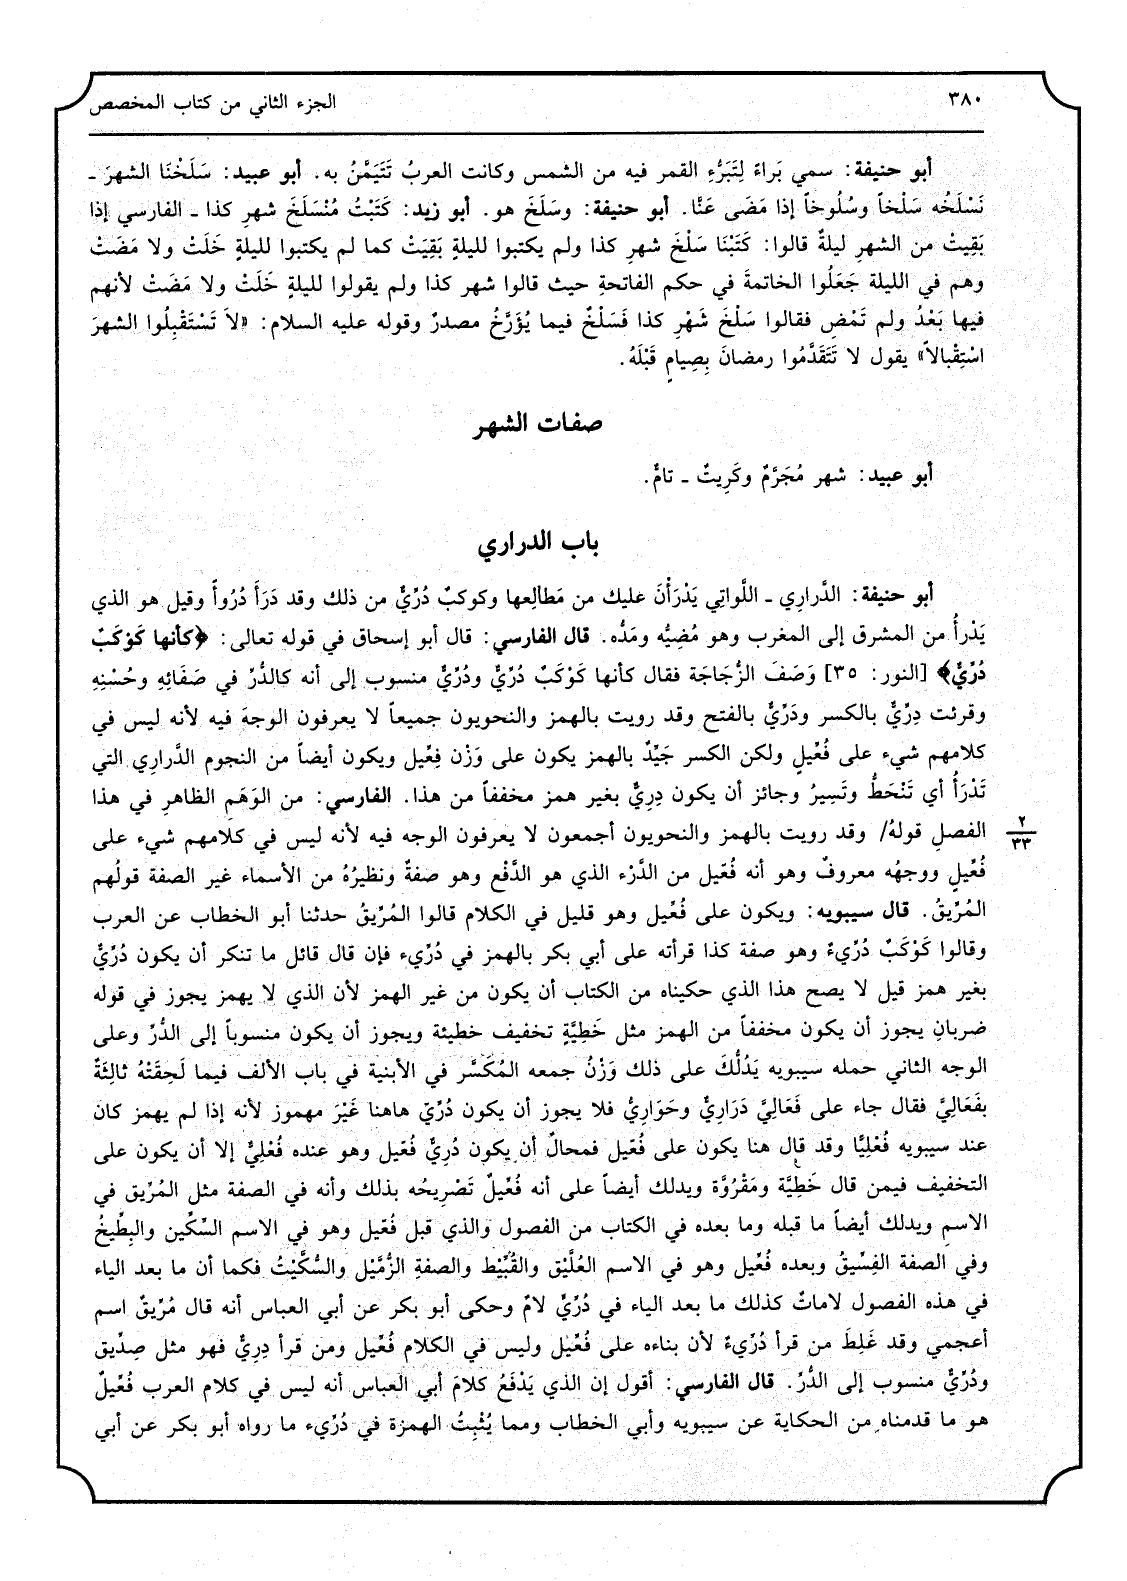 ٣٨٠
الجزء الثاني من كتاب المخصص
أبو حنيفة: سمي بَراءً لِتَبَرُّءِ القمر فيه من الشمس وكانت العربُ تَتَيَمَّنُ به. أبو عبيد: سَلَخْنَا الشهرَ ـ
نَسْلَخُه سَلْخاً وسُلُوخاً إذا مَضَى عَنَّا. أبو حنيفة: وسَلَخَ هو. أبو زيد: كَتَبْتُ مُنْسَلَخَ شهرِ كذا ـ الفارسي إذا
بَقِيتْ من الشهرِ ليلةٌ قالوا: كَتَبْنَا سَلْخَ شهرِ كذا ولم يكتبوا لليلةٍ بَقِيَتْ كما لم يكتبوا لليلةٍ خَلَتْ ولا مَضَتْ
وهم في الليلة جَعَلُوا الخاتمةَ في حكم الفاتحةِ حيث قالوا شهر كذا ولم يقولوا لليلةٍ خَلَتْ ولا مَضَتْ لأنهم
فيها بَعْدُ ولم تَمْضِ فقالوا سَلْخَ شَهْرِ كذا فَسَلْخٌ فيما يُؤَرَّخُ مصدرٌ وقوله عليه السلام: «لاَ تَسْتَقْبِلُوا الشهرَ
اسْتِقْبالاً» يقول لا تَتَقَدَّمُوا رمضانَ بِصِيامٍ قَبْلَهُ.
صفات الشهر
أبو عبيد: شهر مُجَرَّمٌ وكَرِيتٌ ـ تامٌّ.
باب الدراري
أبو حنيفة: الدَّراري ـ اللَّواتِي يَدْرَأْنَ عليك من مَطالِعها وكوكبٌ دُرِّيٌّ من ذلك وقد دَرَأَ دُرُوأً وقيل هو الذي
يَدْرأُ من المشرق إلى المغرب وهو مُضِيُّه ومَدُّه. قال الفارسي: قال أبو إسحاق في قوله تعالى: ﴿كأنها كَوْكَبٌ
دُرِّيٌّ﴾ [النور: ٣٥] وَصَفَ الزُّجَاجَة فقال كأنها كَوْكَبٌ دُرِّيٌّ ودُرِّيٌّ منسوب إلى أنه كالدُّرّ في صَفَائِهِ وحُسْنِهِ
وقرئت دِرِّيٌّ بالكسر ودَرِّيٌّ بالفتح وقد رويت بالهمز والنحويون جميعاً لا يعرفون الوجهَ فيه لأنه ليس في
كلامهم شيء على فُعِّيلٍ ولكن الكسر جَيِّدٌ بالهمز يكون على وَزْن فِعِّيل ويكون أيضاً من النجوم الدَّرارِي التي
تَدْرَأُ أي تَنْحَطُّ وتَسِيرُ وجائز أن يكون دِرِيٌّ بغير همز مخففاً من هذا. الفارسي: من الوَهَمِ الظاهرِ في هذا
الفصلِ قولهُ/ وقد رويت بالهمز والنحويون أجمعون لا يعرفون الوجه فيه لأنه ليس في كلامهم شيء على
٢
٣٣
فُعِّيلٍ ووجهُه معروفٌ وهو أنه فُعِّيل من الدَّرْء الذي هو الدَّفْع وهو صفةٌ ونظيرُهُ من الأسماء غير الصفة قولُهم
المُرِّيقُ. قال سيبويه: ويكون على فُعِّيل وهو قليل في الكلام قالوا المُرِّيقُ حدثنا أبو الخطاب عن العرب
وقالوا كَوْكَبٌ دُرِّيءٌ وهو صفة كذا قرأته على أبي بكر بالهمز في دُرِّيء فإن قال قائل ما تنكر أن يكون دُرِّيٌّ
بغير همز قيل لا يصح هذا الذي حكيناه من الكتاب أن يكون من غير الهمز لأن الذي لا يهمز يجوز في قوله
ضربانِ يجوز أن يكون مخففاً من الهمز مثل خَطِيَّةٍ تخفيف خطيئة ويجوز أن يكون منسوباً إلى الدُّرّ وعلى
الوجه الثاني حمله سيبويه يَدُلُّكَ على ذلك وَزْنُ جمعه المُكَسَّر في الأبنية في باب الألف فيما لَحِقَتْهُ ثالِثَةٌ
بفَعَالِيَّ فقال جاء على فَعَالِيَّ دَرَارِيُّ وحَوَارِيُّ فلا يجوز أن يكون دُرِّيّ هاهنا غَيْرَ مهموز لأنه إذا لم يهمز كان
عند سيبويه فُعْلِيًّا وقد قال هنا يكون على فُعِّيل فمحالٌ أن يكون دُرِيٌّ فُعِّيل وهو عنده فُعْلِيٌّ إلا أن يكون على
التخفيف فيمن قال خَطِيَّة ومَقْرُوَّة ويدلك أيضاً على أنه فُعِّيلٌ تَصْرِيحُه بذلك وأنه في الصفة مثل المُرِّيق في
الاسمِ ويدلك أيضاً ما قبله وما بعده في الكتاب من الفصول والذي قبل فُعِّيل وهو في الاسم السِّكِّين والبِطِّيخُ
وفي الصفة الفِسِّيقُ وبعده فُعِّيل وهو في الاسم العُلَّيْق والقُبَّيْط والصفةِ الزُّمَّيْل والسُّكَّيْتُ فكما أن ما بعد الياء
في هذه الفصول لاماتٌ كذلك ما بعد الياء في دُرِّيٍّ لامٌ وحكى أبو بكر عن أبي العباس أنه قال مُرِّيقٌ اسم
أعجمي وقد غَلِطَ من قرأ دُرِّيءٌ لأن بناءه على فُعِّيل وليس في الكلام فُعِّيل ومن قرأ دِرِيٌّ فهو مثل صِدِّيق
ودُرِّيٌّ منسوب إلى الدُّرّ. قال الفارسي: أقول إن الذي يَدْفَعُ كلامَ أبي العباس أنه ليس في كلام العرب فُعِّيلٌ
هو ما قدمناه من الحكاية عن سيبويه وأبي الخطاب ومما يُثْبِتُ الهمزة في دُرِّيء ما رواه أبو بكر عن أبي